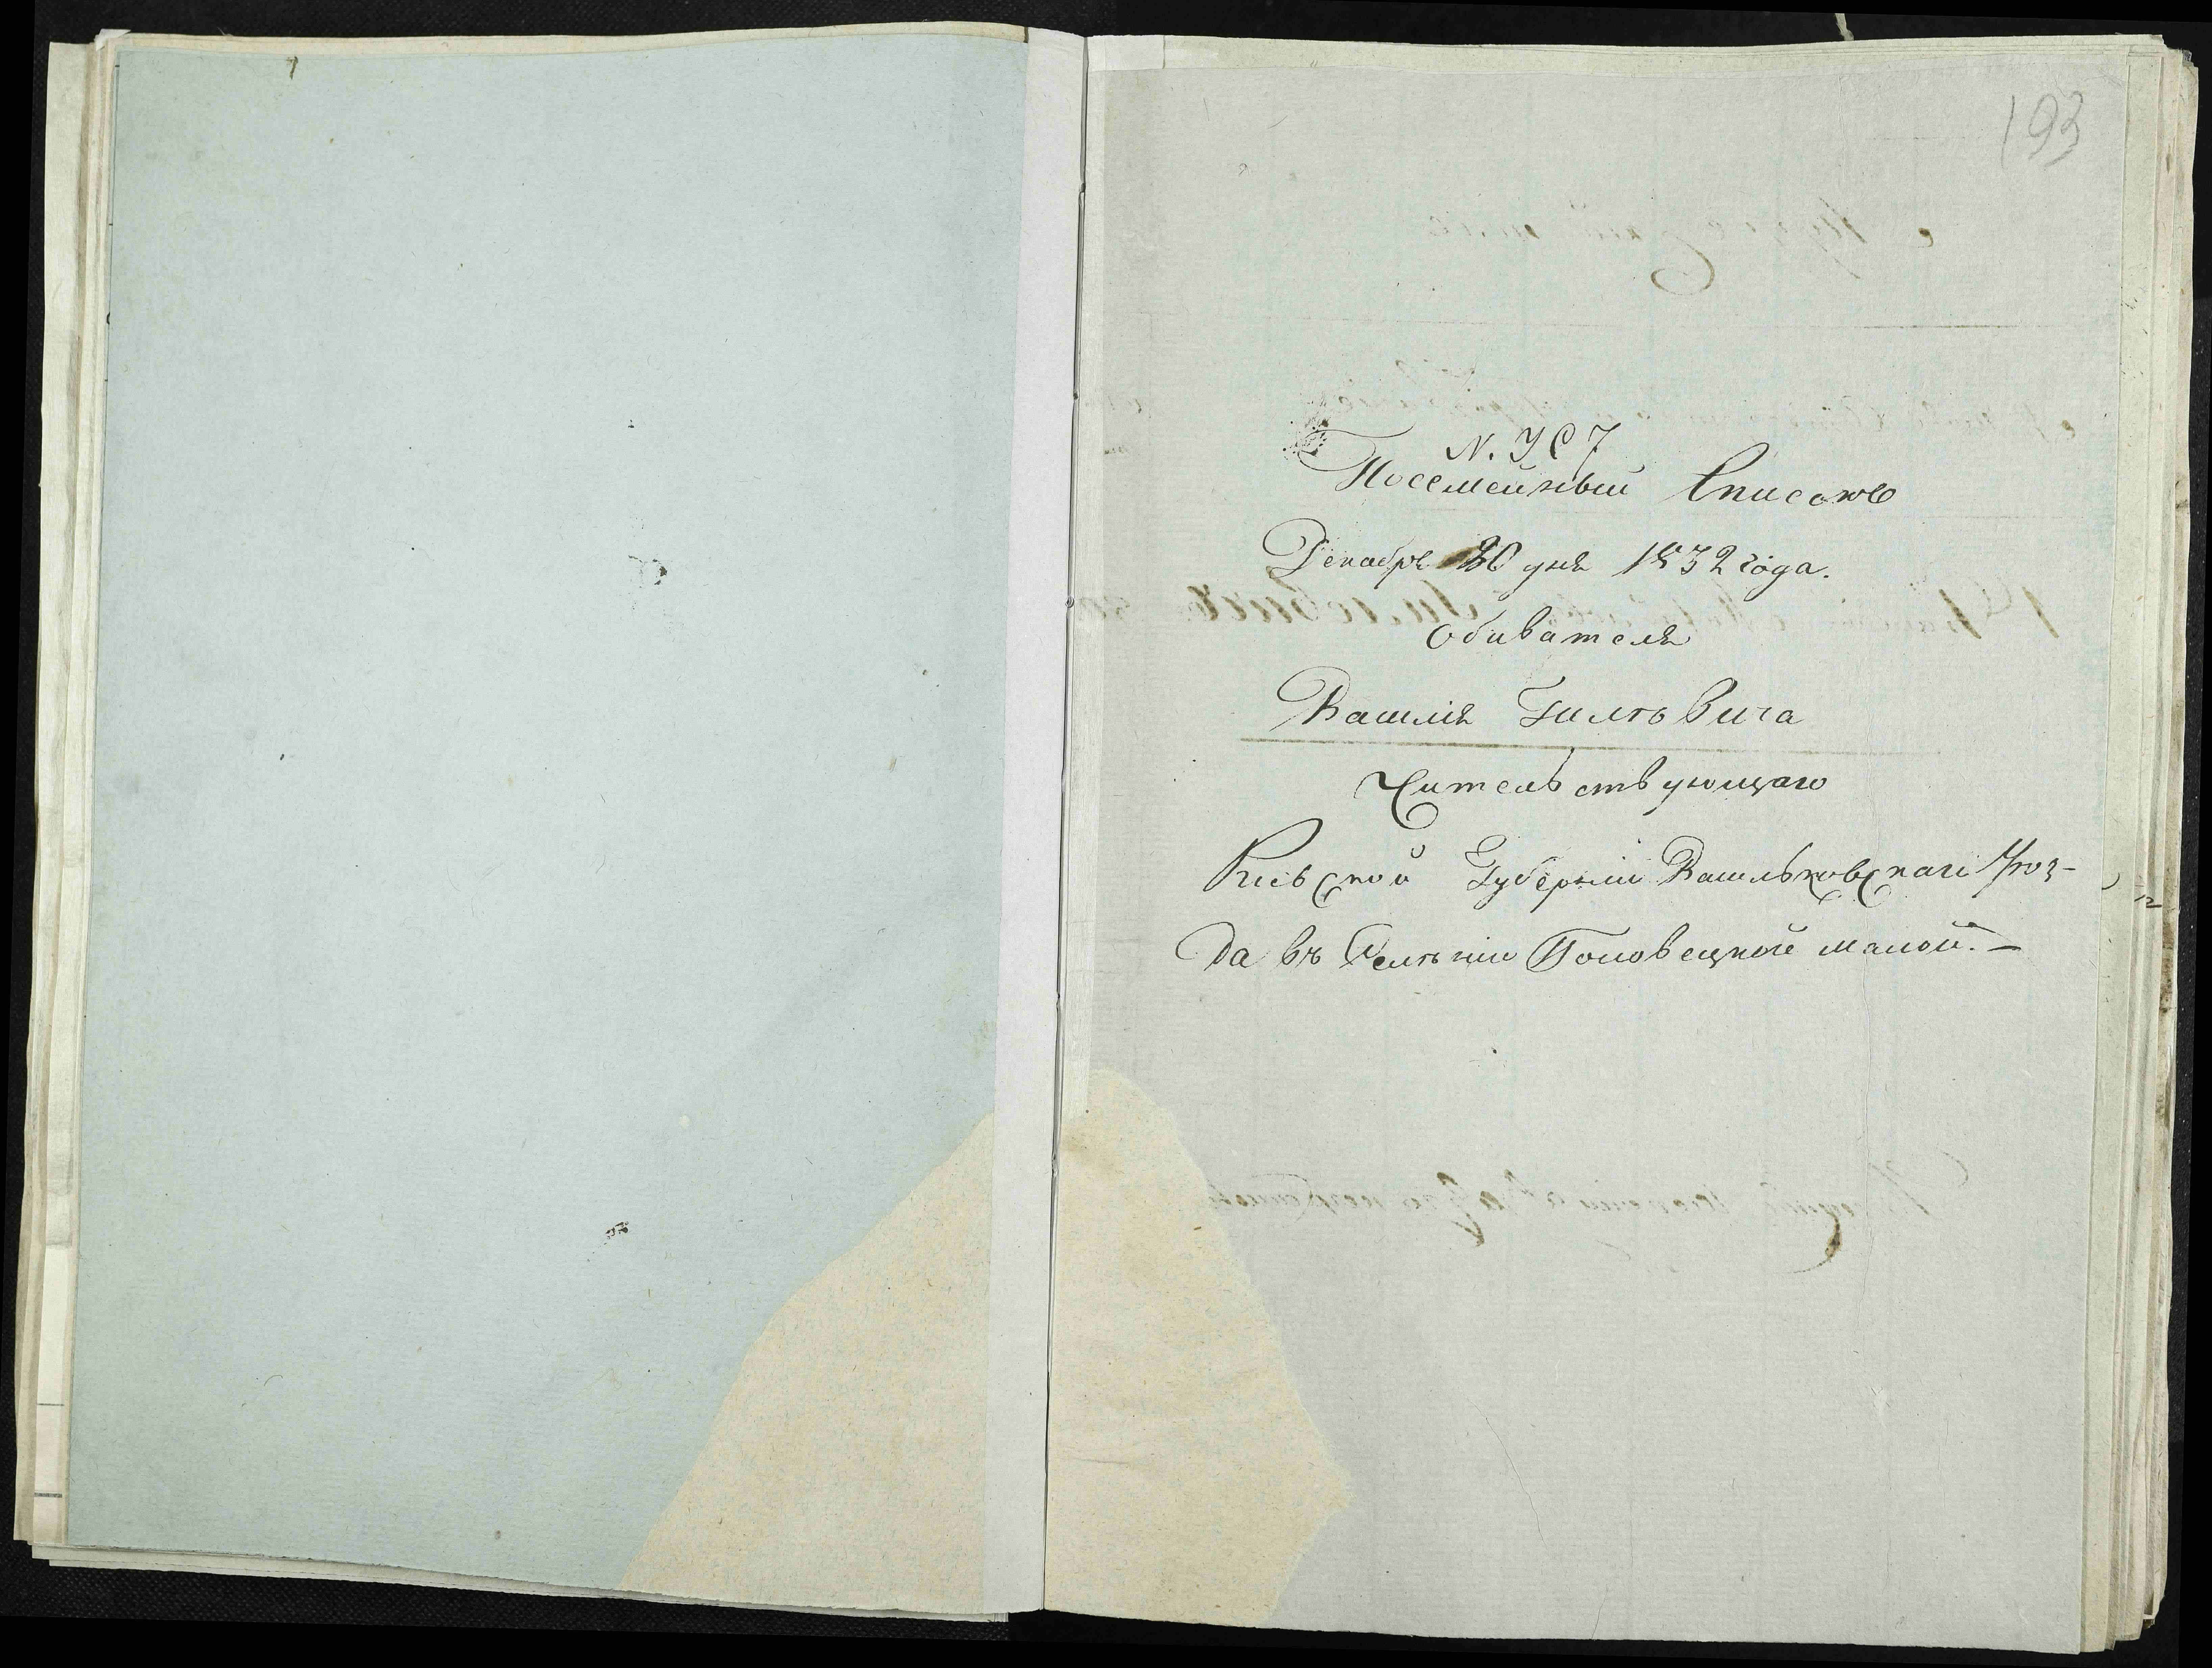 193
N. 907
Посемейный Списокъ
Декабря 30 дня 1832 года.
Обивателя
Василія Гилевича
Жительствующаго
Кіевской Губерніи Васильковскаго Уѣз-
да въ Селеніи Половецкой малой. —